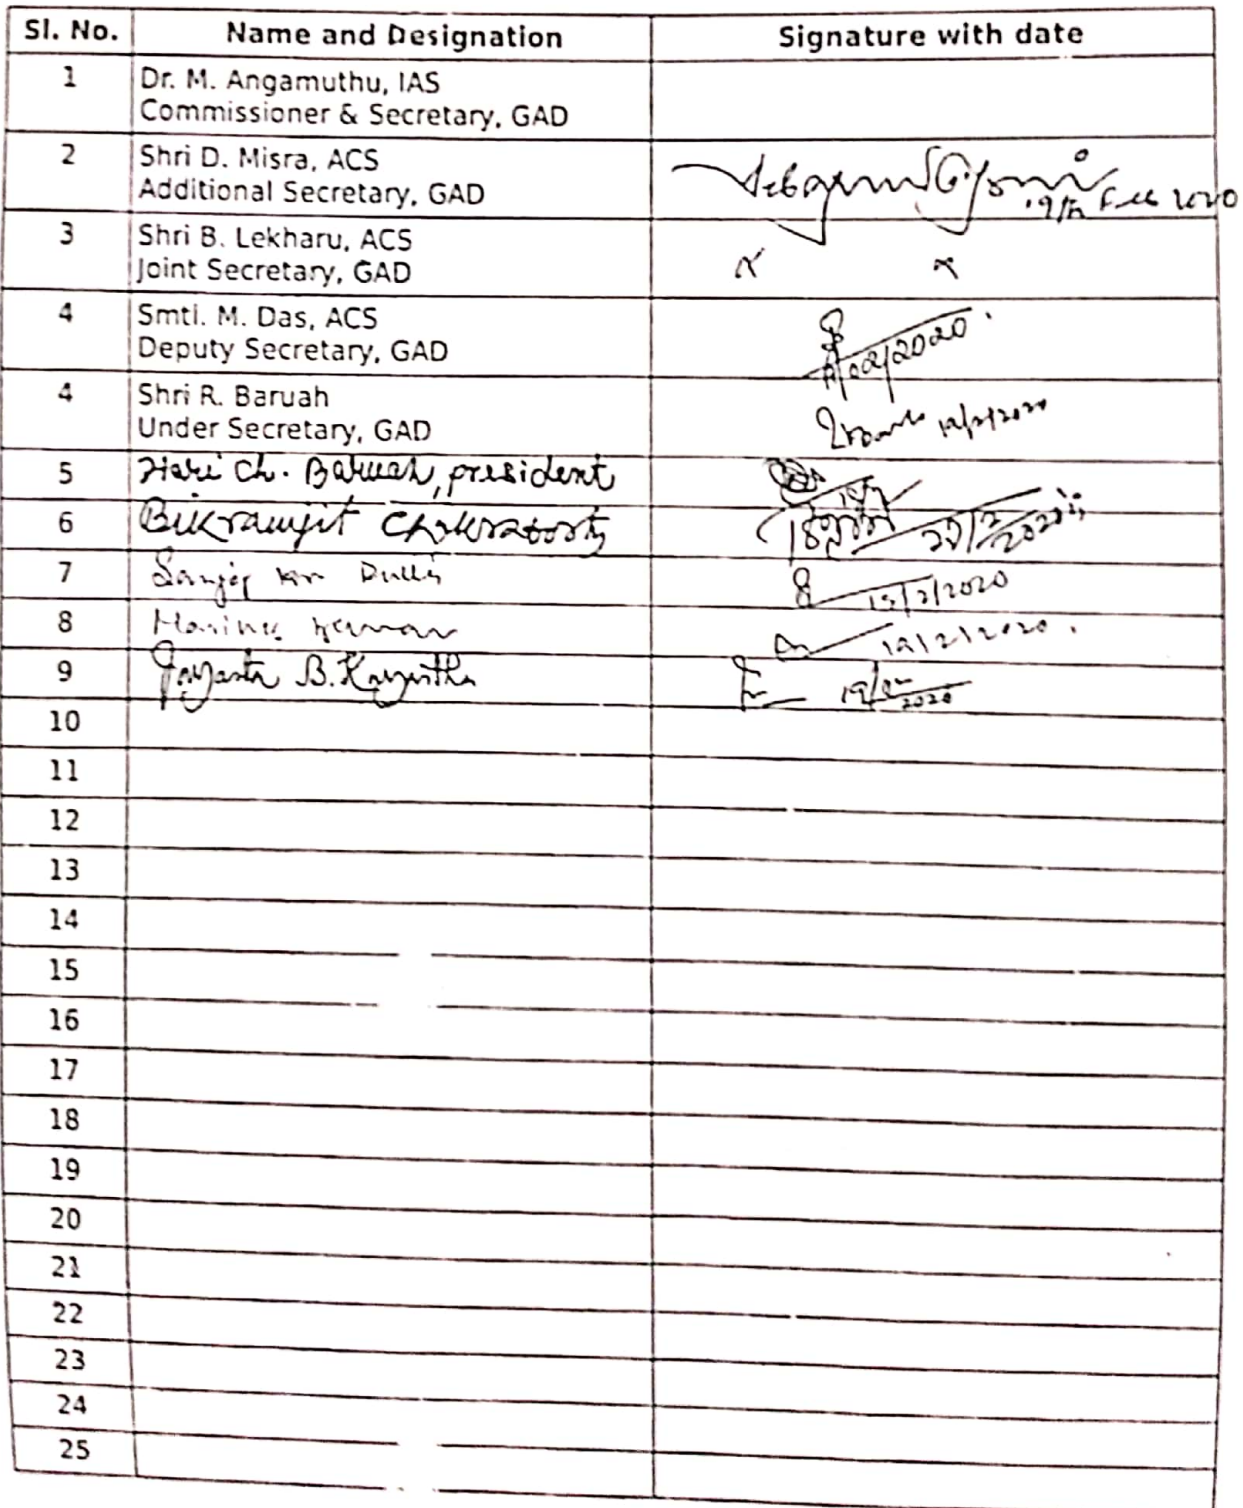 Sl. No. Name and Designation Signature with date
1 Dr. M. Angamuthu, IAS
Commissioner & Secretary, GAD
2 Shri D. Misra, ACS
Additional Secretary, GAD
19/2 Feb 2020
3 Shri B. Lekharu, ACS
Joint Secretary, GAD
4 Smti. M. Das, ACS
Deputy Secretary, GAD
/02/2020
4 Shri R. Baruah
Under Secretary, GAD
5 Hari Ch. Baruah, president
6 Bikramjit Chakraborty
7 Sanjoy kr
/2/2020
8 19/2/2020
9 Jayanta B. Kayastha 19/02/2020
10
11
12
13
14
15
16
17
18
19
20
21
22
23
24
25